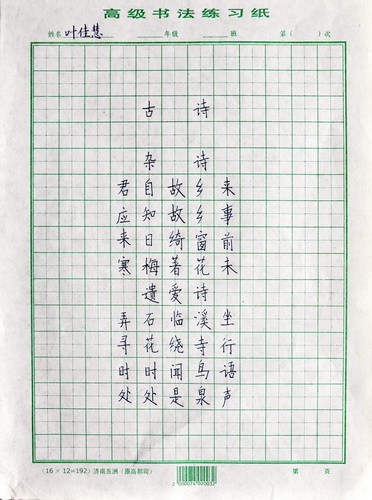 高级书法练习纸
姓名 叶佳慧 年级 班 第( )次
古诗
杂诗
君自故乡来
应知故乡事
来日绮窗前
寒梅著花未
遗爱诗
弄石临溪坐
寻花绕寺行
时时闻鸟语
处处是泉声
(16×12=192) 济南五洲(原高部司) 第 页